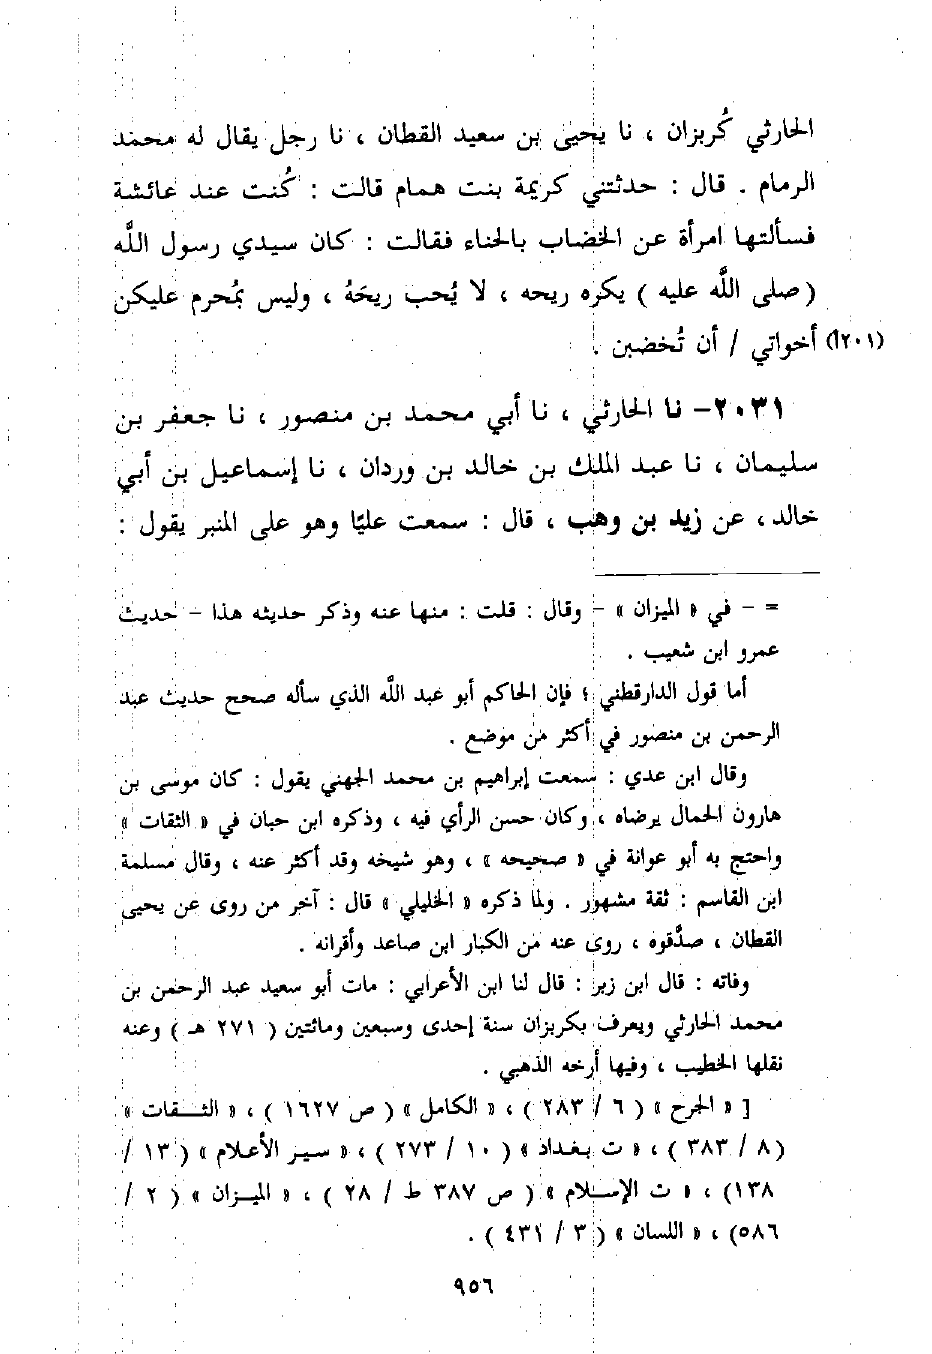 الحارثي كُربزان ، نا يحيى بن سعيد القطان ، نا رجل يقال له محمد
الرمام . قال : حدثتني كريمة بنت همام قالت : كُنت عند عائشة
فسألتها امرأة عن الخضاب بالحناء فقالت : كان سيدي رسول اللَّه
( صلى اللَّه عليه ) يكره ريحه ، لا يُحب ريحَهُ ، وليس بمُحرم عليكن
(٢٠١أ) أخواتي / أن تُخضبن .
٢٠٣١- نا الحارثي ، نا أبي محمد بن منصور ، نا جعفر بن
سليمان ، نا عبد الملك بن خالد بن وردان ، نا إسماعيل بن أبي
خالد ، عن زيد بن وهب ، قال : سمعت عليًا وهو على المنبر يقول :
= - في « الميزان » - وقال : قلت : منها عنه وذكر حديثه هذا - حديث
عمرو ابن شعيب .
أما قول الدارقطني ؛ فإن الحاكم أبو عبد اللَّه الذي سأله صحح حديث عبد
الرحمن بن منصور في أكثر من موضع .
وقال ابن عدي : سمعت إبراهيم بن محمد الجهني يقول : كان موسى بن
هارون الحمال يرضاه ، وكان حسن الرأي فيه ، وذكره ابن حبان في « الثقات »
واحتج به أبو عوانة في « صحيحه » ، وهو شيخه وقد أكثر عنه ، وقال مسلمة
ابن القاسم : ثقة مشهور . ولما ذكره « الخليلي » قال : آخر من روى عن يحيى
القطان ، صدَّقوه ، روى عنه من الكبار ابن صاعد وأقرانه .
وفاته : قال ابن زبر : قال لنا ابن الأعرابي : مات أبو سعيد عبد الرحمن بن
محمد الحارثي ويعرف بكربزان سنة إحدى وسبعين ومائتين ( ٢٧١ هـ ) وعنه
نقلها الخطيب ، وفيها أرخه الذهبي .
[ « الجرح » ( ٦ / ٢٨٣ ) ، « الكامل » ( ص ١٦٢٧ ) ، « الثـقات »
( ٨ / ٣٨٣ ) ، « ت بغداد » ( ١٠ / ٢٧٣ ) ، « سير الأعلام » ( ١٣ /
١٣٨) ، « ت الإسلام » ( ص ٣٨٧ ط / ٢٨ ) ، « الميزان » ( ٢ /
٥٨٦) ، « اللسان » ( ٣ / ٤٣١ ) .
٩٥٦